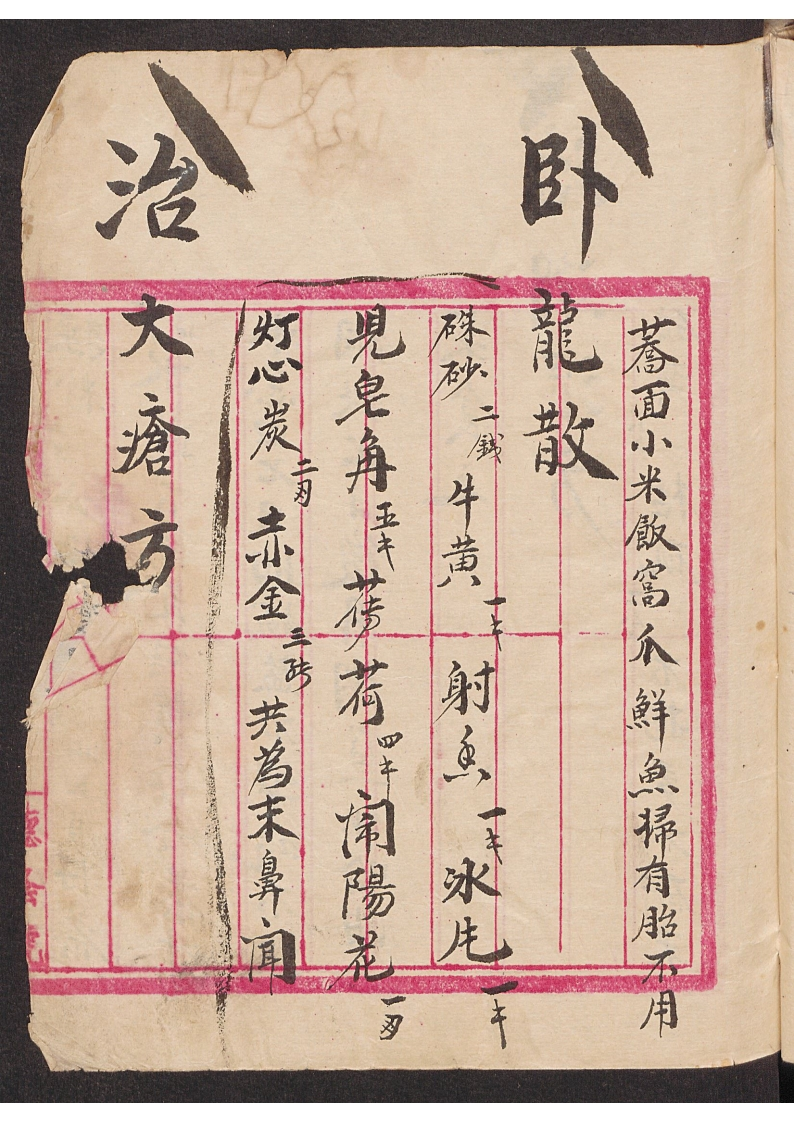 蕎面小米飯窩瓜鮮魚掃有胎不用
卧龍散
硃砂二錢牛黄一キ射香一キ冰片一キ
見皂角五キ荷四キ閙陽花一刄
灯心炭二刄赤金三張共為末鼻闻
治大瘡方